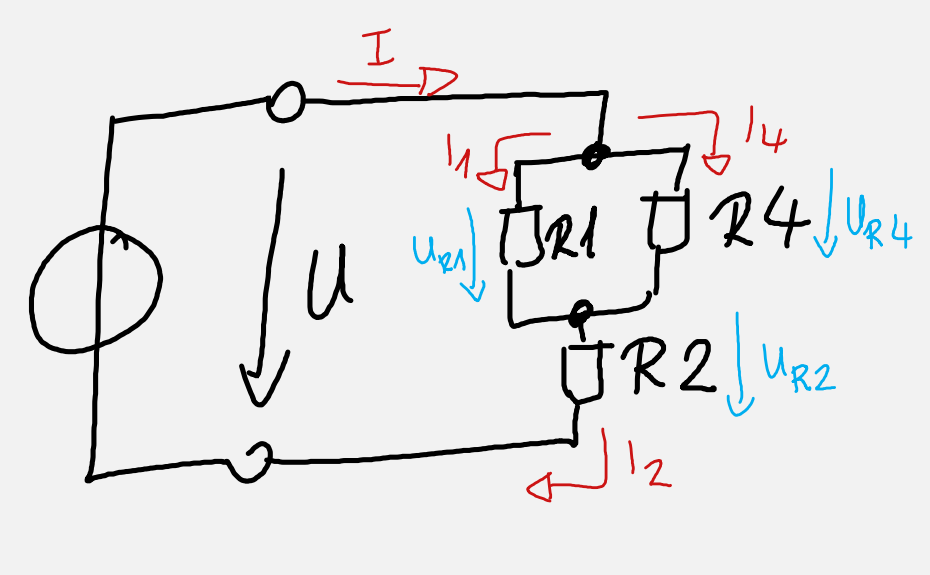 I
I1
I4
UR1
R1
R4
UR4
U
R2
UR2
I2